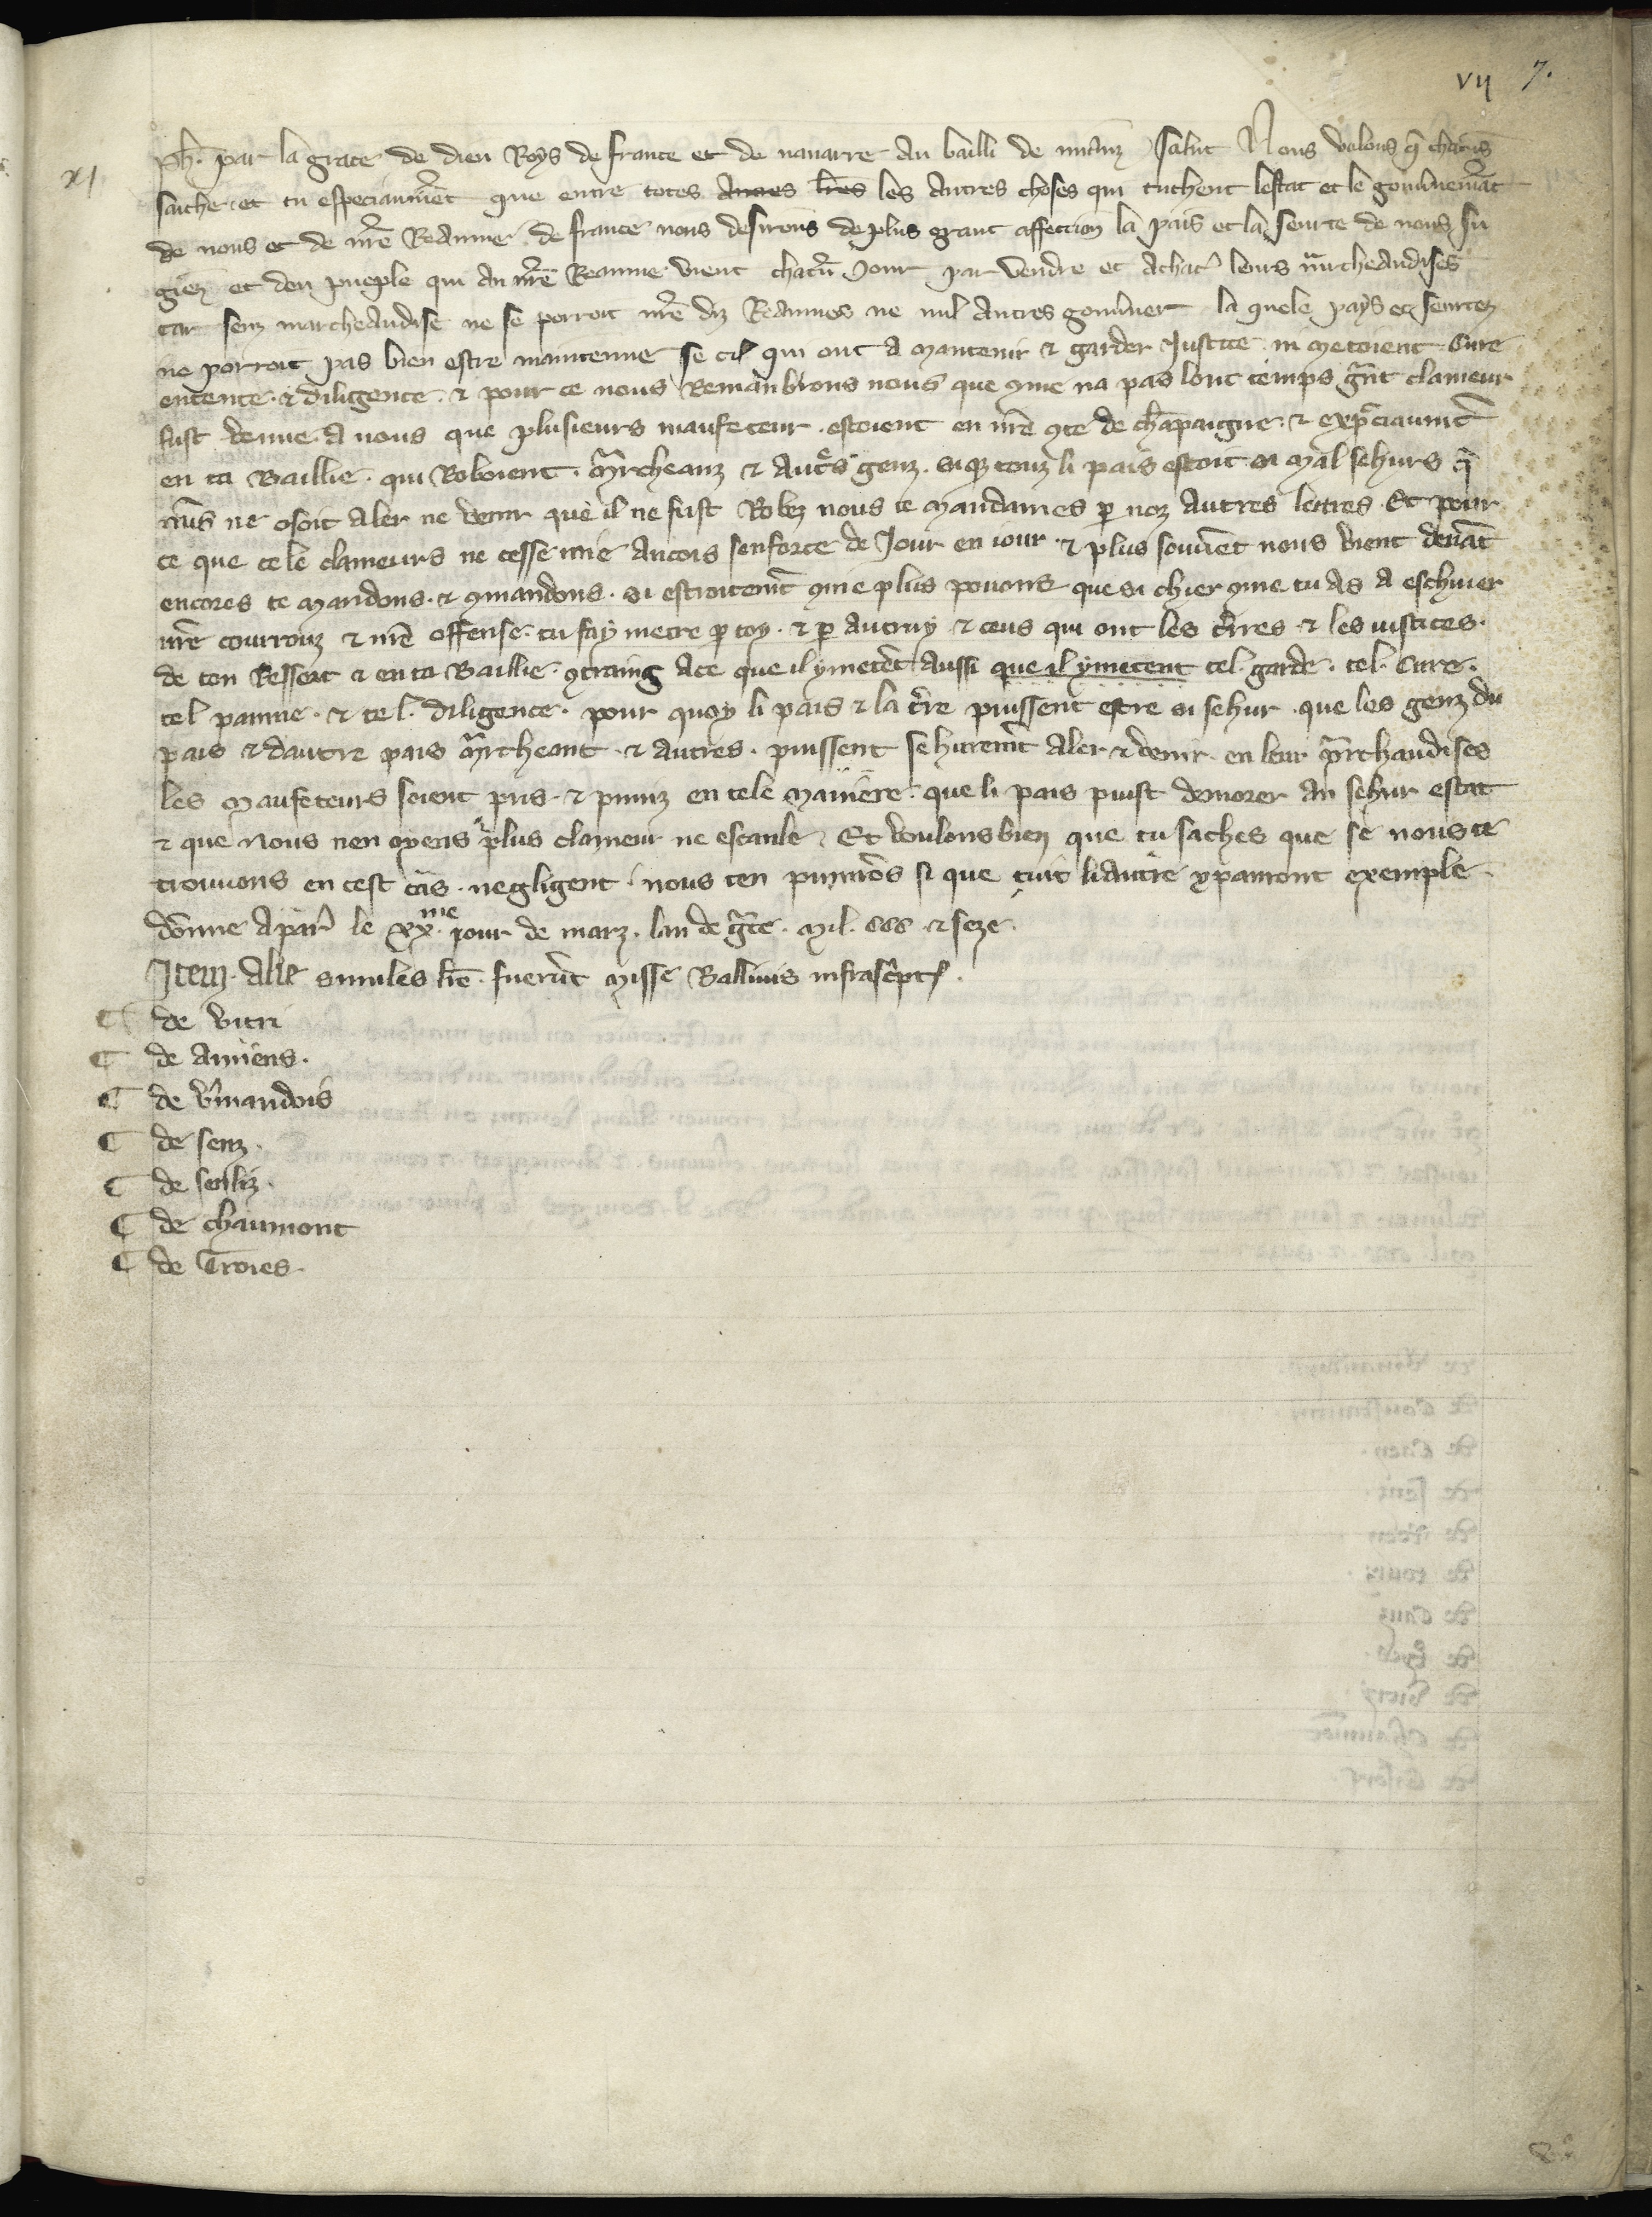 vij 7.
xj
Ph. par la grace de dieu Roys de france et de nauarre Au bailli de miauz salut Nous volons q̄ chacūs
sache et tu especiaumēt que entre totes Autres lr̄es les Autres choses qui tuchent lestat et le gouuernemāt
de nous et de nr̄e Reaume de france nous desirons de plus grant affection la pais et la seurte de nous su
giez et dou pueple qui an nr̄e Reaume vient chacū Jour par vendre et Achat' leurs marcheandises
car senz marcheandise ne se porroit nr̄e diz Reaumes ne nul Autres gouuner la quele pays et seurtez
ne porroit pas bien estre maintenue se cil qui ont a mantenir & garder Justice ni metoient Cure
entente & diligence & pour ce nous Remanbrons nous que 9me na pas lont temps gn̄t clameur
fust venue a nous que plusieurs maufeteur estoient en nr̄e 9te de chāpaigne & expciaumt̄
en ta Baillie qui Roboient Mrcheanz & Autrs genz siq3 touz li pais estoit si mal sehurs q̄
nūs ne osoit Aler ne venir que il ne fust Robez nous te mandames p noz Autres lettres Et pour
ce que cele clameurs ne cesse mie Ancois senforce de Jour en iour & plus souuēt nous vient deuāt
encores te Mandons & 9mandons si estroitemt̄ 9me plus povons que si chier 9me tu As A eschuier
nr̄e courrouz & nr̄e offense tu fay metre p toy & p Autruy & ceus qui ont les tr̄res & les iustices
de ton Ressort & en ta Baillie 9traing Ace que il ymetēt Aussi que il ymetent tel garde tel Cure
tel painne & tel diligence pour quoy li pais & la tr̄re puissent estre si sehur que les genz du
pais & dautre pais Mrcheant & Autres puissent sehuremt̄ Aler & venir en leur mrchandises
les Maufeteurs soient pris & puniz en tele Maniere que li pais puist demorer An sehur estat
& que nous nen oyens plus clameur ne escanle Et voulons bien que tu saches que se nous te
trouuons en cest cas negligent nous ten punirōs si que tuit li autre ypanront exemple
donne A par' le xx me jour de marz lan de gr̄ce Mil ccc & seze
Item Alie similes lr̄e fuerūt Misse Balliuis infrascpt
de vitri
de Amiens
de v'mandois
de senz
de senliz
de chaumont
de Troies